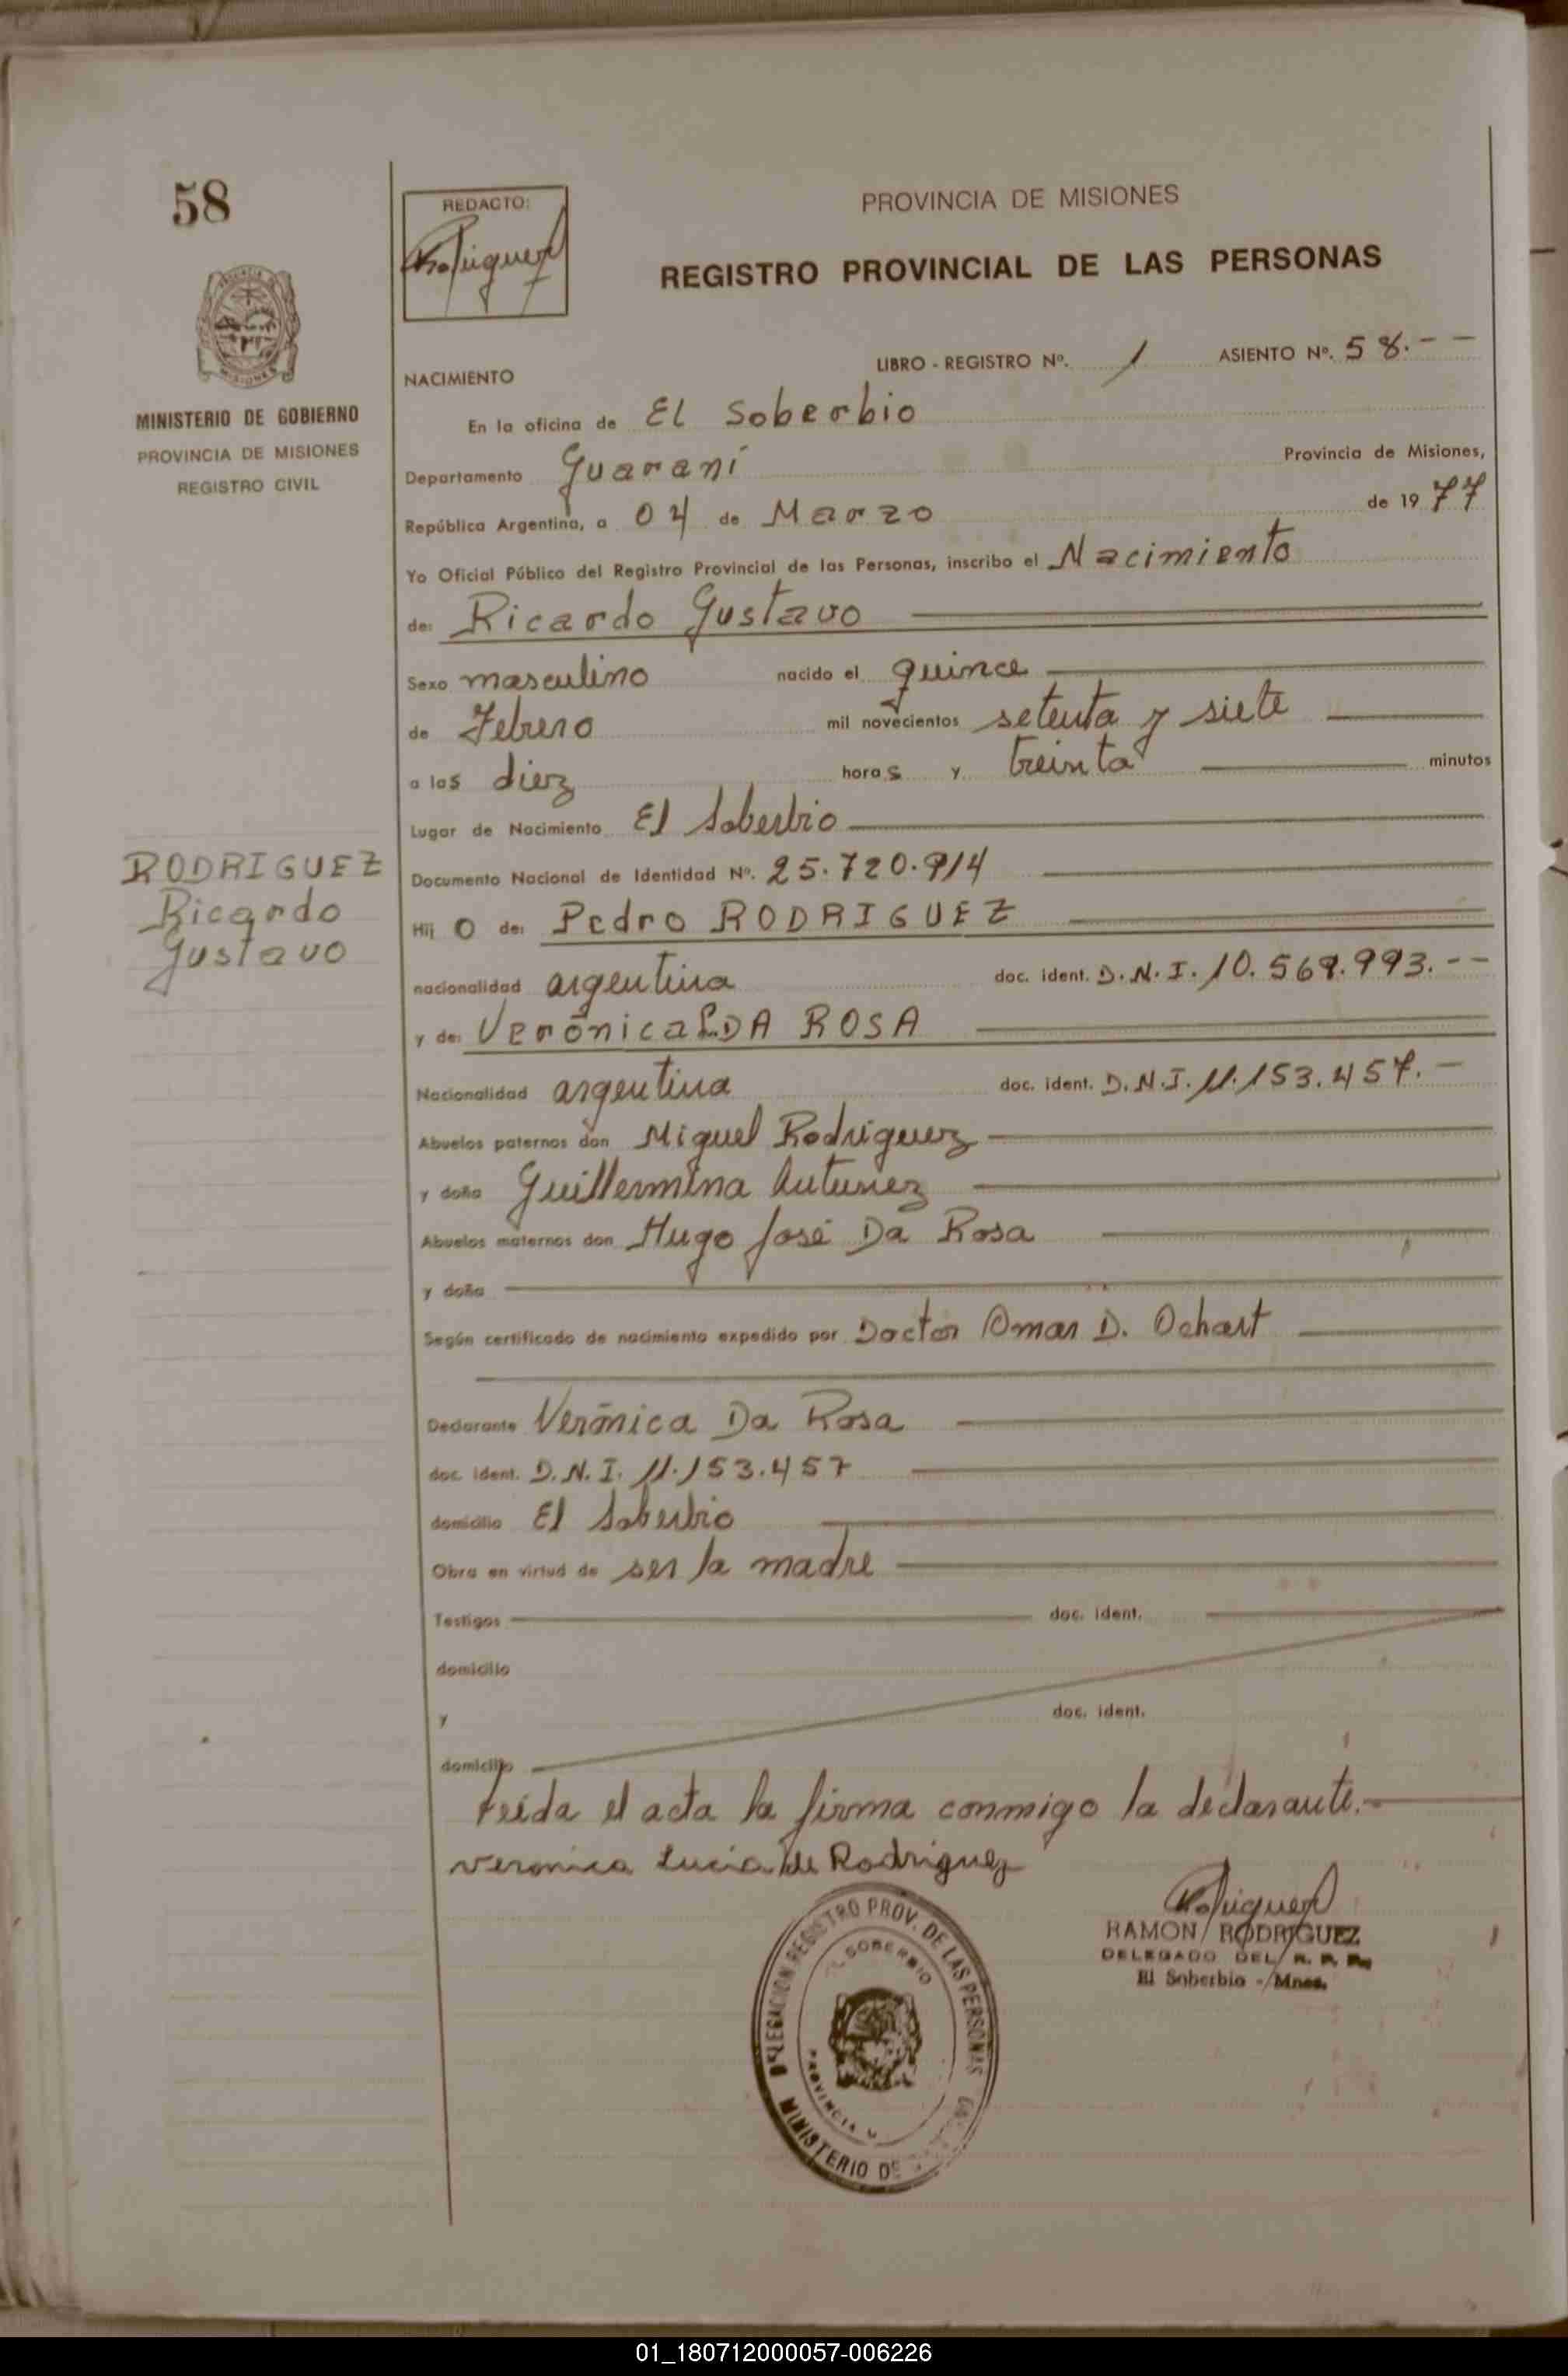 58
REDACTO:
Rodriguez
PROVINCIA DE MISIONES
REGISTRO PROVINCIAL DE LAS PERSONAS
MISIONES
MINISTERIO DE GOBIERNO
PROVINCIA DE MISIONES
REGISTRO CIVIL
NACIMIENTO
LIBRO - REGISTRO Nº. 1 ASIENTO Nº. 58.--
En la oficina de El Soberbio
Departamento Guaraní Provincia de Misiones,
República Argentina, a 04 de Marzo de 1977
Yo Oficial Público del Registro Provincial de las Personas, inscribo el Nacimiento
de: Ricardo Gustavo
Sexo masculino nacido el quince
de Febrero mil novecientos setenta y siete
a las diez horas y treinta minutos
Lugar de Nacimiento El Soberbio
Documento Nacional de Identidad Nº. 25.720.914
RODRIGUEZ
Ricardo
Gustavo
Hij o de: Pedro RODRIGUEZ
nacionalidad argentina doc. ident. D.N.I. 10.569.993.--
y de: Verónica L. DA ROSA
Nacionalidad argentina doc. ident. D.N.I. 11.153.457.-
Abuelos paternos don Miguel Rodriguez
y doña Guillermina Antunez
Abuelos maternos don Hugo José Da Rosa
y doña
Según certificado de nacimiento expedido por Doctor Omar D. Ochart
Declarante Verónica Da Rosa
doc. ident. D.N.I. 11.153.457
domicilio El Soberbio
Obra en virtud de ser la madre
Testigos doc. ident.
domicilio
y doc. ident.
domicilio
Leída el acta la firma conmigo la declarante.-
Veronica Lucia de Rodriguez
Rodriguez
RAMON RODRIGUEZ
DELEGADO DEL R. P. P.
El Soberbio - Mnes.
DELEGACION REGISTRO PROV. DE LAS PERSONAS
SOBERBIO
PROVINCIA
MINISTERIO DE
01_180712000057-006226